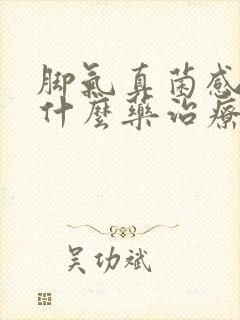 脚氣真菌感
什麼藥治療
吴功斌